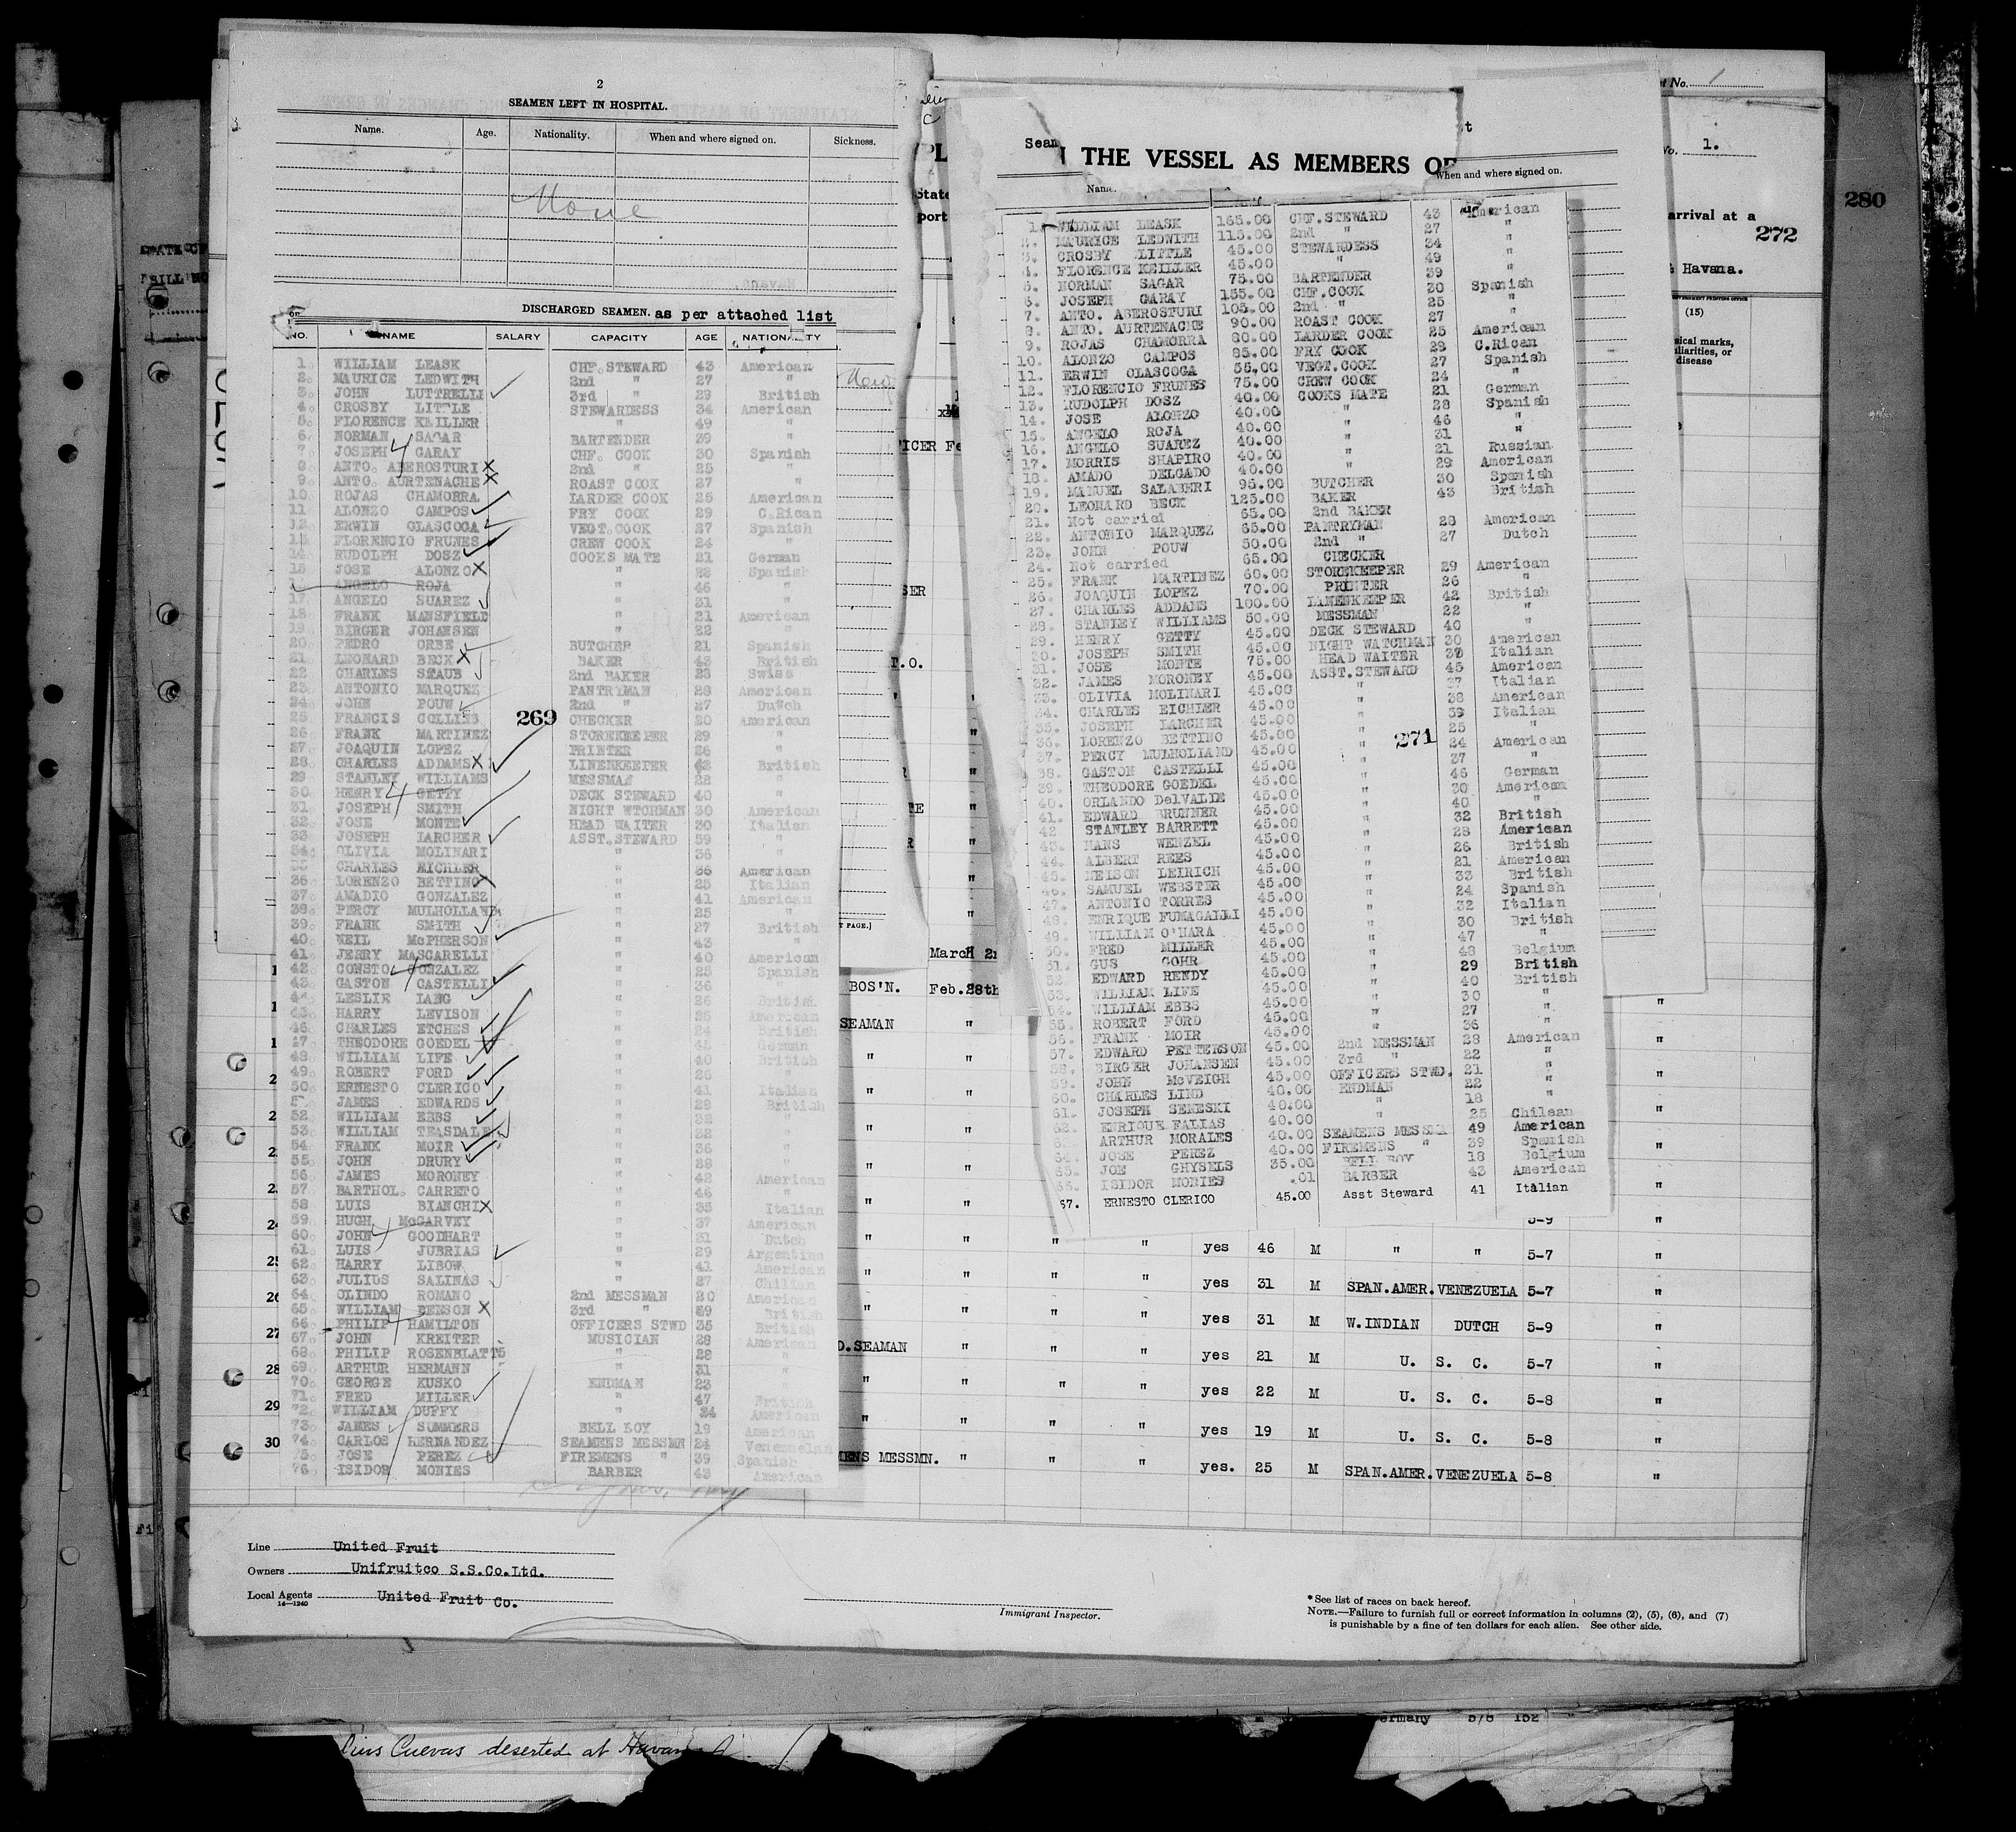 2
SEAMEN LEFT IN HOSPITAL.
Name. Age. Nationality. When and where signed on. Sickness.
None
DISCHARGED SEAMEN. as per attached list
NO. NAME SALARY CAPACITY AGE NATIONALITY
1. WILLIAM LEASK CHF. STEWARD 43 American
2. MAURICE LEDWITH 2nd " 27 "
3. JOHN LUTTRELL 3rd " 29 British
4. CROSBY LITTLE STEWARDESS 34 American
5. FLORENCE KEILLER " 49 "
6. NORMAN SAGAR BARTENDER 39 "
7. JOSEPH GARAY CHF. COOK 30 Spanish
8. ANTO. ABEROSTURI 2nd " 25 "
9. ANTO. AURTENACHE ROAST COOK 27 "
10. ROJAS CHAMORRA LARDER COOK 25 American
11. ALONZO CAMPOS FRY COOK 29 C.Rican
12. ERWIN OLASCOGA VEGT.COOK 27 Spanish
13. FLORENCIO FRUNES CREW COOK 24 "
14. RUDOLPH DOSZ COOKS MATE 21 German
15. JOSE ALONZO " 28 Spanish
ANGELO ROJA " 46 "
17. ANGELO SUAREZ " 31 "
18. FRANK MANSFIELD " 21 American
19. BIRGER JOHANSEN " 22 "
20. PEDRO ORBE BUTCHER 21 Spanish
21. LEONARD BECK BAKER 43 British
22. CHARLES STAUB 2nd BAKER 23 Swiss
23. ANTONIO MARQUEZ PANTRYMAN 28 American
24. JOHN POUW 2nd " 27 Dutch
25. FRANCIS COLLINS CHECKER 20 American
269
26. FRANK MARTINEZ STOREKEEPER 29 "
27. JOAQUIN LOPEZ PRINTER 26 "
28. CHARLES ADDAMS LINENKEEPER 42 British
29. STANLEY WILLIAMS MESSMAN 22 "
30. HENRY GETTY DECK STEWARD 40 "
31. JOSEPH SMITH NIGHT WTCHMAN 30 American
32. JOSE MONTE HEAD WAITER 30 Italian
33. JOSEPH LARCHER ASST.STEWARD 59 "
34. OLIVIA MOLINARI " 36 "
35. CHARLES EICHLER " 36 American
36. LORENZO BETTINO " 25 Italian
37. AMADIO GONZALEZ " 41 American
38. PERCY MULHOLLAND " 25 "
39. FRANK SMITH " 27 British
40. NEIL McPHERSON " 43 "
41. JERRY MASCARELLI " 40 American
42. CONSTO GONZALEZ " 25 Spanish
43. GASTON CASTELLI " 36 "
44. LESLIE LANG " 26 British
45. HARRY LEVISON " 26 American
46. CHARLES ETCHES " 24 British
47. THEODORE GOEDEL " German
48. WILLIAM LIFE " 40 British
49. ROBERT FORD " 26 "
50. ERNESTO CLERICO " 41 Italian
JAMES EDWARDS " 28 British
52. WILLIAM EBBS " "
53. WILLIAM TEASDALE " 32 "
54. FRANK MOIR " 36 "
55. JOHN DRURY " 28 "
56. JAMES MORONEY " 42 American
57. BARTHOL. CARRETO " 46 "
58. LUIS BIANCHI " 35 Italian
59. HUGH McGARVEY " 37 American
60. JOHN GOODHART " 31 Dutch
61. LUIS JUBRIAS " 29 Argentine
62. HARRY LIBOW " 41 American
63. JULIUS SALINAS " 27 Chilian
64. OLINDO ROMANO 2nd MESSMAN 20 American
65. WILLIAM BENSON 3rd " 59 British
66. PHILIP HAMILTON OFFICERS STWD 35 British
67. JOHN KREITER MUSICIAN 28 American
68. PHILIP ROSENBLATT " 28 "
69. ARTHUR HERMANN " 31 "
70. GEORGE KUSKO ENDMAN 23 "
71. FRED MILLER " 47 British
72. WILLIAM DUFFY " 24 American
73. JAMES SUMMERS BELL BOY 19 American
74. CARLOS HERNANDEZ SEAMENS MESSMN 24 Venezuelan
75. JOSE PEREZ FIREMENS " 39 Spanish
76. ISIDOR MONIES BARBER 43 American
Seam
THE VESSEL AS MEMBERS OF
When and where signed on.
Name.
1. WILLIAM LEASK 165.00 CHF.STEWARD 43 American
2. MAURICE LEDWITH 115.00 2nd " 27 "
3. CROSBY LITTLE 45.00 STEWARDESS 34 "
4. FLORENCE KEILLER 45.00 " 49 "
5. NORMAN SAGAR 75.00 BARTENDER 39 "
6. JOSEPH GARAY 155.00 CHF.COOK 30 Spanish
7. ANTO. ABEROSTURI 105.00 2nd " 25 "
8. ANTO. AURTENACHE 90.00 ROAST COOK 27 "
9. ROJAS CHAMORRA 80.00 LARDER COOK 25 American
10. ALONZO CAMPOS 85.00 FRY COOK 29 C.Rican
11. ERWIN OLASCOGA 55.00 VEGT.COOK 27 Spanish
12. FLORENCIO FRUNES 75.00 CREW COOK 24 "
13. RUDOLPH DOSZ 40.00 COOKS MATE 21 German
14. JOSE ALONZO 40.00 " 28 Spanish
15. ANGELO ROJA 40.00 " 46 "
16. ANGELO SUAREZ 40.00 " 31 "
17. MORRIS SHAPIRO 40.00 " 21 Russian
18. AMADO DELGADO 40.00 " 29 American
19. MANUEL SALABERI 95.00 BUTCHER 30 Spanish
20. LEONARD BECK 125.00 BAKER 43 British
21. Not carried 65.00 2nd BAKER
22. ANTONIO MARQUEZ 65.00 PANTRYMAN 28 American
23. JOHN POUW 50.00 2nd " 27 Dutch
24. Not carried 65.00 CHECKER
25. FRANK MARTINEZ 60.00 STOREKEEPER 29 American
26. JOAQUIN LOPEZ 70.00 PRINTER 26 "
27. CHARLES ADDAMS 100.00 LINENKEEPER 42 British
28. STANLEY WILLIAMS 50.00 MESSMAN 22 "
29. HENRY GETTY 45.00 DECK STEWARD 40 "
30. JOSEPH SMITH 45.00 NIGHT WATCHMAN 30 American
31. JOSE MONTE 75.00 HEAD WAITER Italian
32. JAMES MORONEY 45.00 ASST.STEWARD 45 American
33. OLIVIA MOLINARI 45.00 " 37 Italian
34. CHARLES EICHLER 45.00 " 38 American
35. JOSEPH LARCHER 45.00 " 59 Italian
36. LORENZO BETTINO 45.00 " 25 "
271
37. PERCY MULHOLLAND 45.00 " 24 American
38. GASTON CASTELLI 45.00 " 37 "
39. THEODORE GOEDEL 45.00 " 46 German
40. ORLANDO DelVALDE 45.00 " 30 American
41. EDWARD BRUNNER 45.00 " 40 "
42 STANLEY BARRETT 45.00 " 32 British
43. HANS WENZEL 45.00 " 28 American
44. ALBERT REES 45.00 " 26 British
45. NELSON LEIRICH 45.00 " 21 American
46. SAMUEL WEBSTER 45.00 " 33 British
47. ANTONIO TORRES 45.00 " 24 Spanish
48. ENRIQUE FUMAGALLI 45.00 " 32 Italian
49. WILLIAM O'HARA 45.00 " 30 British
50. FRED MILLER 45.00 " 47 "
51. GUS GOHR 45.00 " 48 Belgium
52. EDWARD RENDY 45.00 " 29 British
53. WILLIAM LIFE 45.00 " 40 British
54. WILLIAM EBBS 45.00 " 30 "
55. ROBERT FORD 45.00 " 27 "
56. FRANK MOIR 45.00 " 36 "
57. EDWARD PETTERSON 45.00 2nd MESSMAN 28 American
58. BIRGER JOHANSEN 45.00 3rd " 22 "
59. JOHN McVEIGH 45.00 OFFICERS STWD. 21 "
60. CHARLES LIND 40.00 ENDMAN 22 "
61. JOSEPH SENESKI 40.00 " 18 "
62. ENRIQUE FALIAS 40.00 " 25 Chilean
ARTHUR MORALES 40.00 SEAMENS MESSMA 49 American
64. JOSE PEREZ 40.00 FIREMENS " 39 Spanish
65. JOE GHYSELS 35.00 BELL BOY 18 Belgium
66. ISIDOR MONIES .01 BARBER 43 American
67. ERNESTO CLERICO 45.00 Asst Steward 41 Italian
t No. 1
No. 1.
280
arrival at a
272
Havana.
GOVERNMENT PRINTING OFFICE
(15)
sical marks,
liarities, or
disease
State
port
ICER Fe
SER
T.O.
T PAGE.]
March 21
BOS'N. Feb.28th
SEAMAN "
5-9 "
24 " " " " yes 46 M " " 5-7 "
25 " " " " yes 31 M SPAN.AMER. VENEZUELA 5-7 "
26 " " " " yes 31 M W.INDIAN DUTCH 5-9 "
27 D.SEAMAN " " " yes 21 M U. S. C. 5-7 "
28 " " " " yes 22 M U. S. C. 5-8 "
29 " " " " yes 19 M U. S. C. 5-8 "
30 MENS MESSMN. " " " yes. 25 M SPAN.AMER. VENEZUELA 5-8 "
Line United Fruit
Owners Unifruitco S.S.Co.Ltd.
Local Agents United Fruit Co.
14—1240
Immigrant Inspector.
*See list of races on back hereof.
NOTE.—Failure to furnish full or correct information in columns (2), (5), (6), and (7)
is punishable by a fine of ten dollars for each alien. See other side.
ermany 5/8 152
Cuevas deserted at Havan